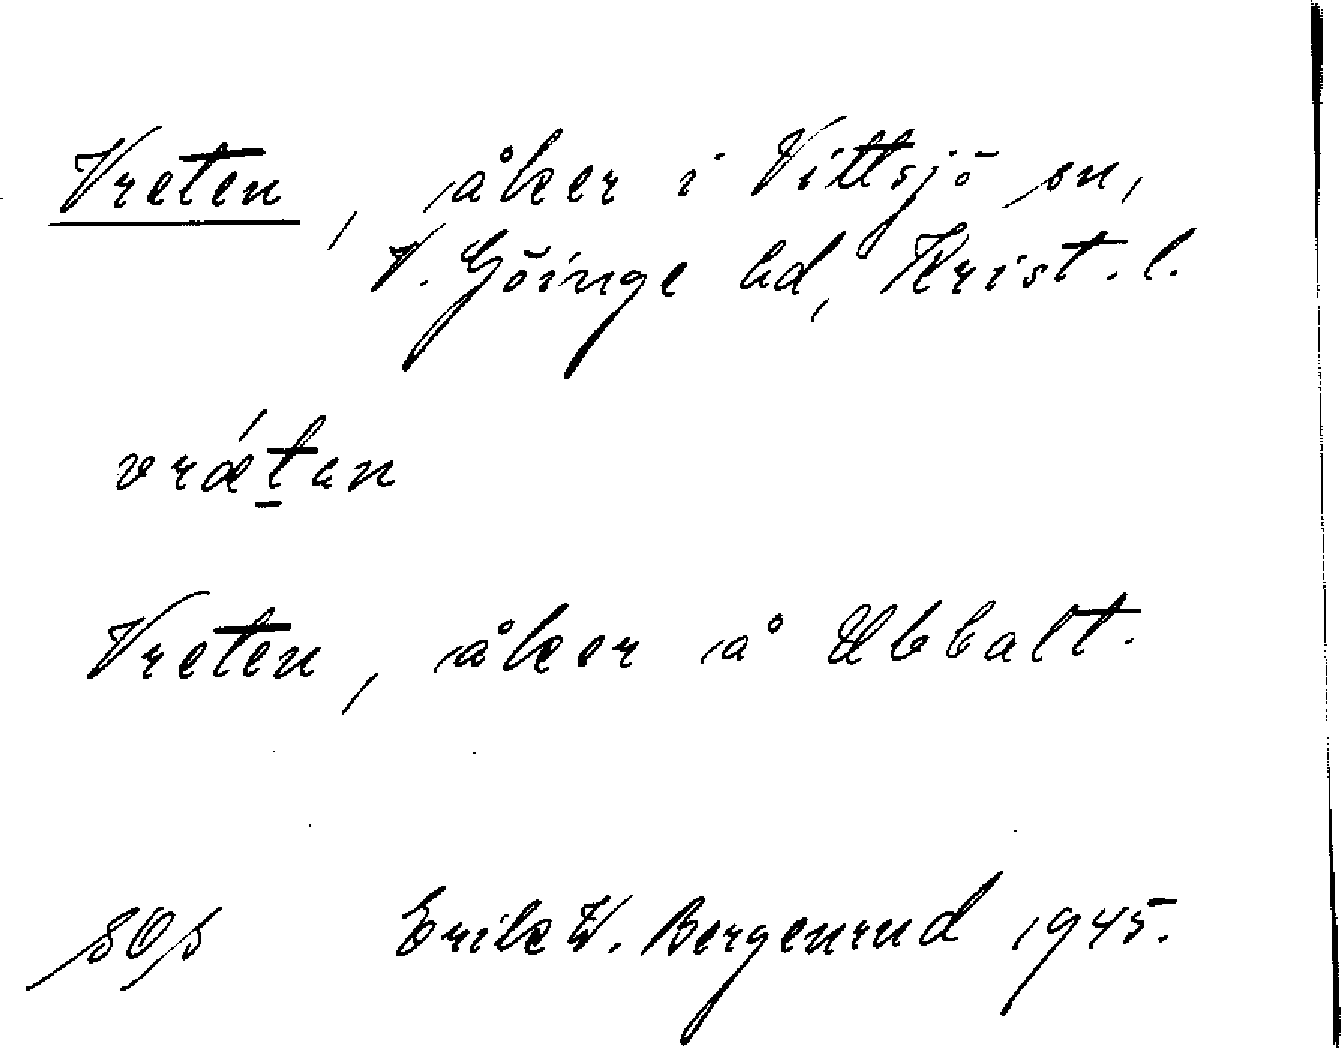 Vreten, åker i Vittsjö sn,
V. Göinge hd, Krist. l.
vrǽt̲an
Vreten, åker å Ubbalt.
Erik W. Bergenrud 1945.